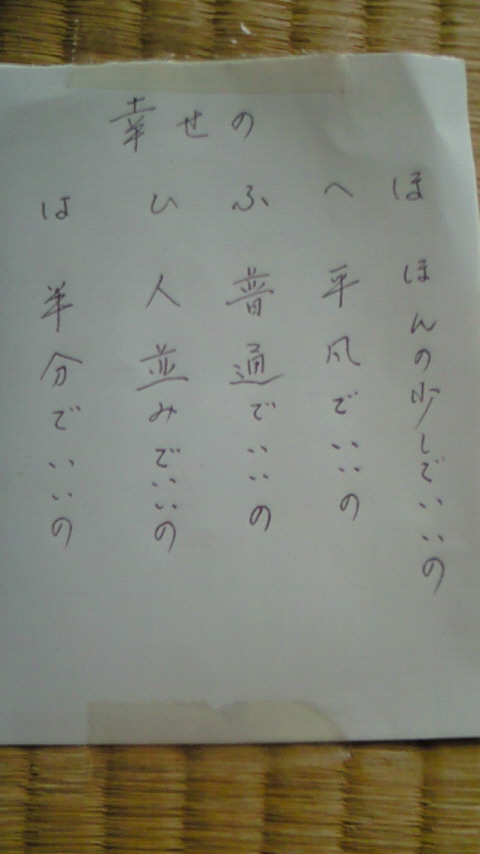 幸せの
は 半分でいいの
ひ 人並みでいいの
ふ 普通でいいの
へ 平凡でいいの
ほ ほんの少しでいいの